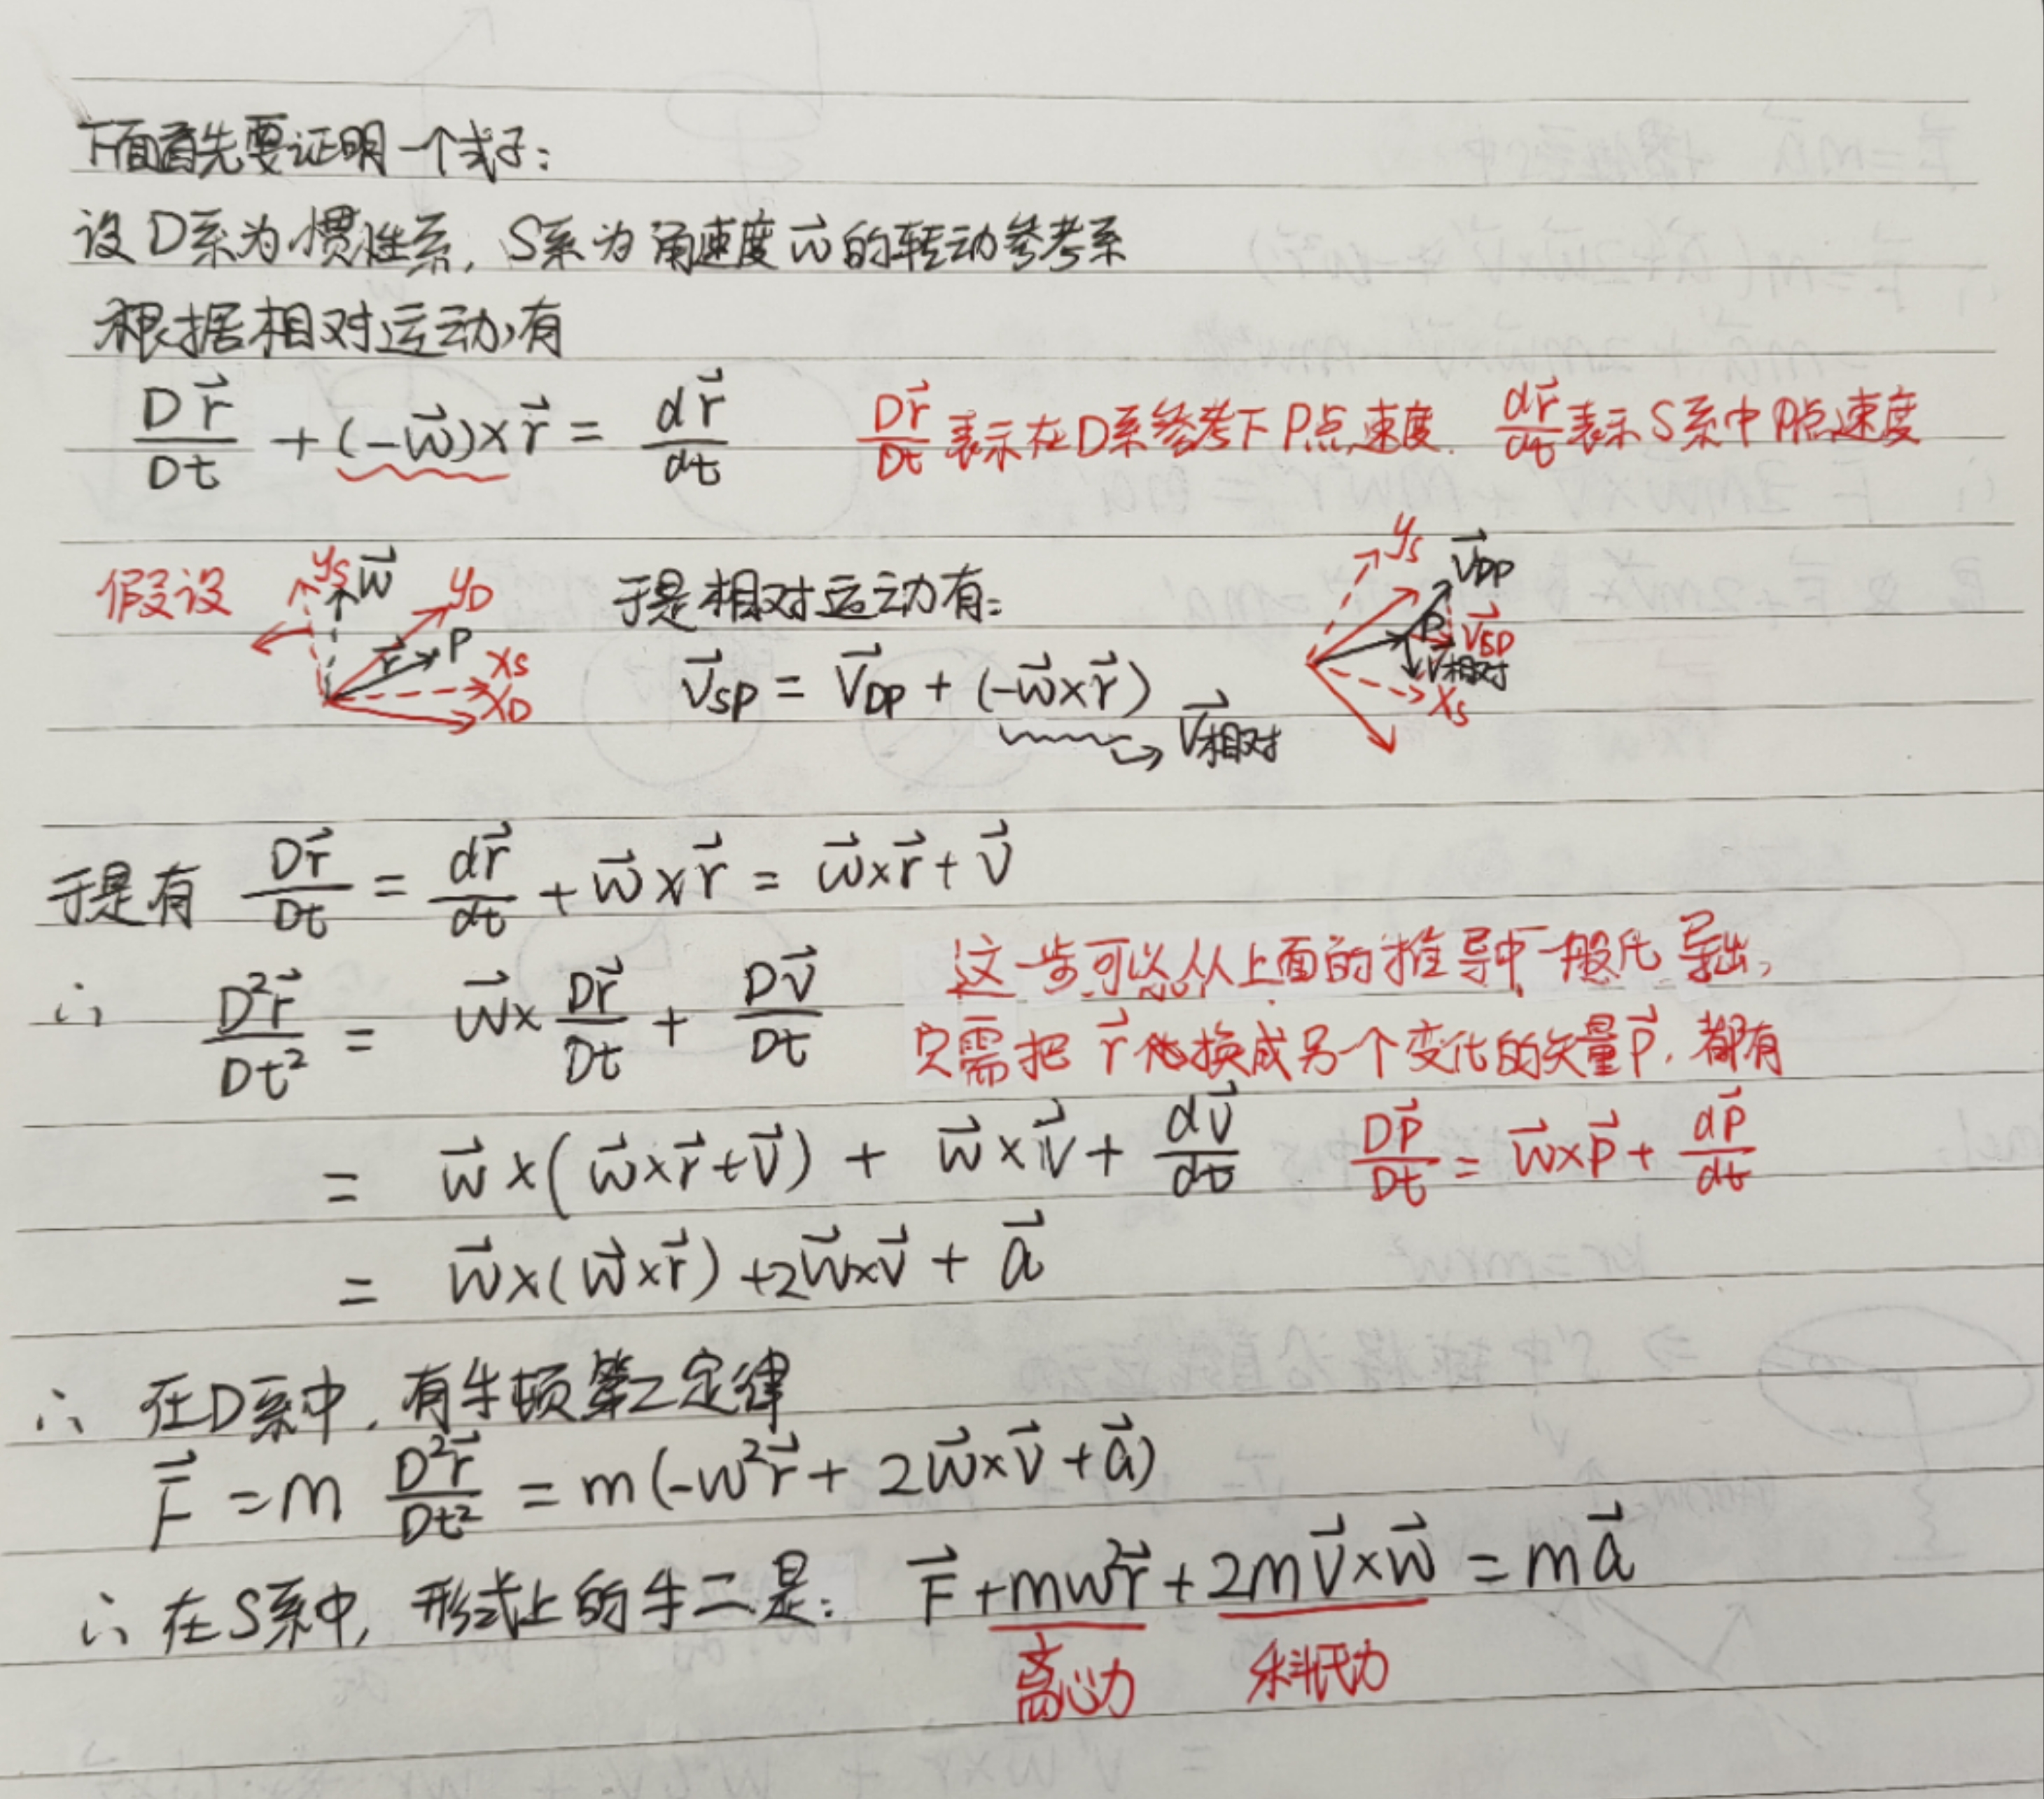 下面首先要证明一个式子:
设D系为惯性系, S系为角速度w⃗的转动参考系
根据相对运动,有
Dr⃗/Dt + (-w⃗)×r⃗ = dr⃗/dt Dr⃗/Dt 表示在D系参考下P点速度. dr⃗/dt 表示S系中P点速度
假设 yS w⃗ yD r⃗ P xS xD
于是相对运动有:
V⃗SP = V⃗DP + (-w⃗×r⃗) V⃗相对
yS V⃗DP P V⃗SP V⃗相对 xS
于是有 Dr⃗/Dt = dr⃗/dt + w⃗×r⃗ = w⃗×r⃗ + V⃗
∴ D²r⃗/Dt² = w⃗× Dr⃗/Dt + DV⃗/Dt
这一步可以从上面的推导中一般化导出,
只需把r⃗代换成另一个变化的矢量P⃗, 都有
DP⃗/Dt = w⃗×P⃗ + dP⃗/dt
= w⃗×(w⃗×r⃗+V⃗) + w⃗×V⃗ + dV⃗/dt
= w⃗×(w⃗×r⃗) +2w⃗×V⃗ + a⃗
∴ 在D系中, 有牛顿第二定律
F⃗ = m D²r⃗/Dt² = m(-w²r⃗ + 2w⃗×V⃗ + a⃗)
∴ 在S系中, 形式上的牛二是: F⃗ + mw²r⃗ + 2mV⃗×w⃗ = ma⃗
离心力 科氏力